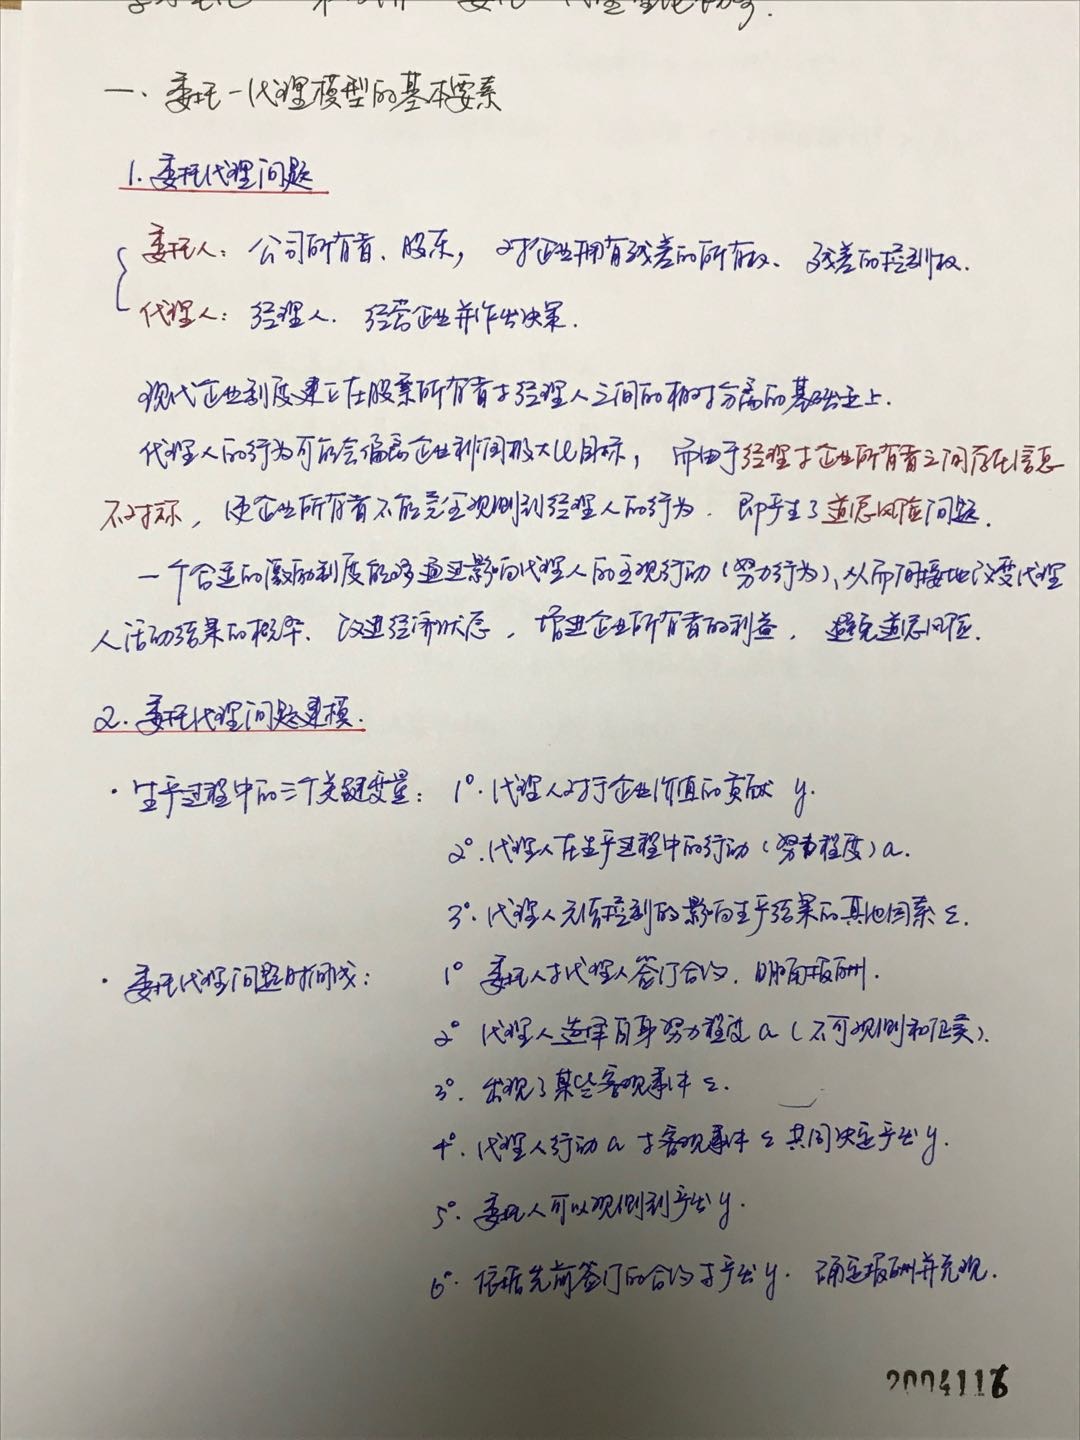 委托—代理
一、委托—代理模型的基本要素
1. 委托代理问题
委托人：公司所有者、股东，对企业拥有残差的所有权、残差的控制权.
代理人：经理人. 经营企业并作出决策.
现代企业制度建立在股票所有者与经理人之间的相对分离的基础之上.
代理人的行为可能会偏离企业利润极大化目标，而由于经理与企业所有者之间存在信息
不对称，使企业所有者不能完全观测到经理人的行为. 即产生了道德风险问题.
一个合适的激励制度能够通过影响代理人的主观行动（努力行为）、从而间接地改变代理
人活动结果的概率、改进经济状态，增进企业所有者的利益，避免道德风险.
2. 委托代理问题建模.
· 生产过程中的三个关键变量： 1°. 代理人对于企业价值的贡献 y.
2°. 代理人在生产过程中的行动（努力程度）a.
3°. 代理人无法控制的影响生产结果的其他因素 ε.
· 委托代理问题时间线： 1° 委托人与代理人签订合约，明确报酬.
2° 代理人选择自身努力程度 a（不可观测和证实）.
3°. 出现了某些客观事件 ε.
4°. 代理人行动 a 与客观事件 ε 共同决定产出 y.
5°. 委托人可以观测到产出 y.
6°. 依据先前签订的合约与产出 y. 确定报酬并兑现.
2004116